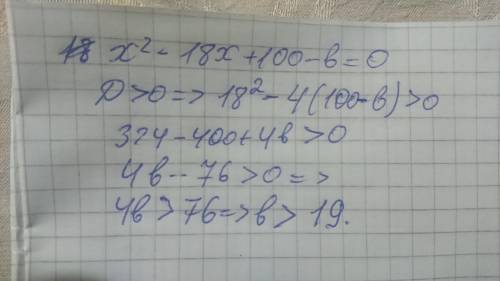 x² - 18x + 100 - b = 0
D > 0 => 18² - 4(100 - b) > 0
324 - 400 + 4b > 0
4b - 76 > 0 = >
4b > 76 => b > 19.